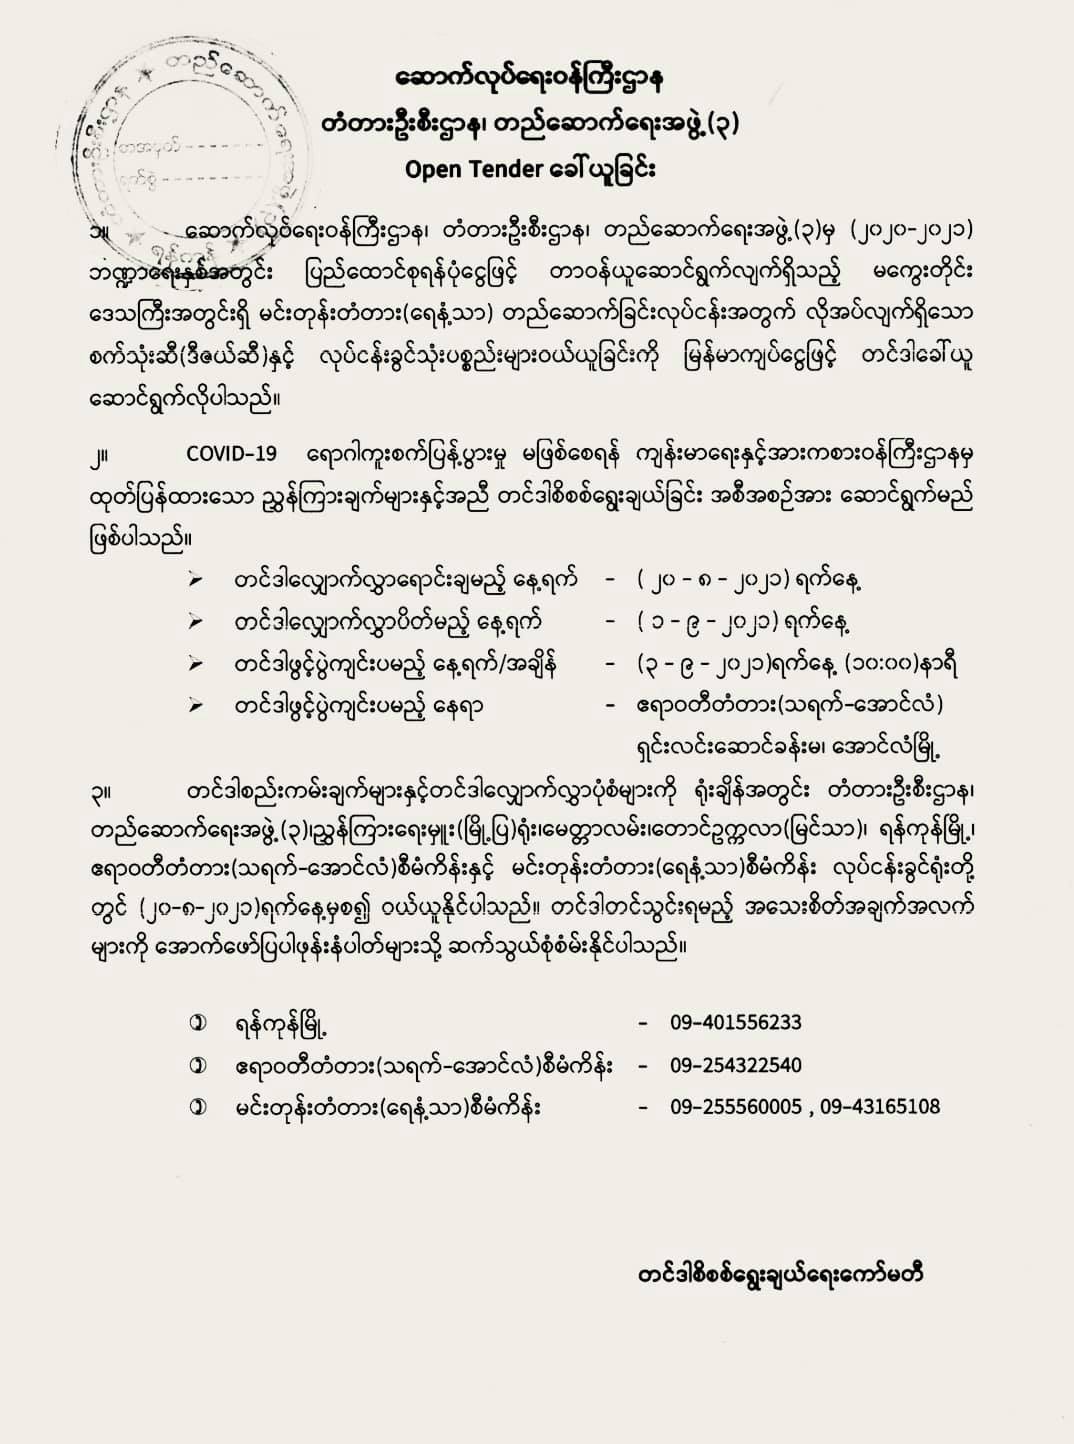 ဆောက်လုပ်ရေးဝန်ကြီးဌာန
တံတားဦးစီးဌာန၊ တည်ဆောက်ရေးအဖွဲ့(၃)
Open Tender ခေါ်ယူခြင်း
၁။ ဆောက်လုပ်ရေးဝန်ကြီးဌာန၊ တံတားဦးစီးဌာန၊ တည်ဆောက်ရေးအဖွဲ့(၃)မှ (၂၀၂၀-၂၀၂၁)
ဘဏ္ဍာရေးနှစ်အတွင်း ပြည်ထောင်စုရန်ပုံငွေဖြင့် တာဝန်ယူဆောင်ရွက်လျက်ရှိသည့် မကွေးတိုင်း
ဒေသကြီးအတွင်းရှိ မင်းတုန်းတံတား(ရေနံ့သာ) တည်ဆောက်ခြင်းလုပ်ငန်းအတွက် လိုအပ်လျက်ရှိသော
စက်သုံးဆီ(ဒီဇယ်ဆီ)နှင့် လုပ်ငန်းခွင်သုံးပစ္စည်းများဝယ်ယူခြင်းကို မြန်မာကျပ်ငွေဖြင့် တင်ဒါခေါ်ယူ
ဆောင်ရွက်လိုပါသည်။
၂။ COVID-19 ရောဂါကူးစက်ပြန့်ပွားမှု မဖြစ်စေရန် ကျန်းမာရေးနှင့်အားကစားဝန်ကြီးဌာနမှ
ထုတ်ပြန်ထားသော ညွှန်ကြားချက်များနှင့်အညီ တင်ဒါစိစစ်ရွေးချယ်ခြင်း အစီအစဉ်အား ဆောင်ရွက်မည်
ဖြစ်ပါသည်။
➢ တင်ဒါလျှောက်လွှာရောင်းချမည့် နေ့ရက် - ( ၂၀ - ၈ - ၂၀၂၁) ရက်နေ့
➢ တင်ဒါလျှောက်လွှာပိတ်မည့် နေ့ရက် - ( ၁ - ၉ - ၂၀၂၁) ရက်နေ့
➢ တင်ဒါဖွင့်ပွဲကျင်းပမည့် နေ့ရက်/အချိန် - (၃ - ၉ - ၂၀၂၁)ရက်နေ့ (၁၀:၀၀)နာရီ
➢ တင်ဒါဖွင့်ပွဲကျင်းပမည့် နေရာ - ဧရာဝတီတံတား(သရက်-အောင်လံ)
ရှင်းလင်းဆောင်ခန်းမ၊ အောင်လံမြို့
၃။ တင်ဒါစည်းကမ်းချက်များနှင့်တင်ဒါလျှောက်လွှာပုံစံများကို ရုံးချိန်အတွင်း တံတားဦးစီးဌာန၊
တည်ဆောက်ရေးအဖွဲ့(၃)၊ညွှန်ကြားရေးမှူး(မြို့ပြ)ရုံး၊မေတ္တာလမ်း၊တောင်ဥက္ကလာ(မြင်သာ)၊ ရန်ကုန်မြို့၊
ဧရာဝတီတံတား(သရက်-အောင်လံ)စီမံကိန်းနှင့် မင်းတုန်းတံတား(ရေနံ့သာ)စီမံကိန်း လုပ်ငန်းခွင်ရုံးတို့
တွင် (၂၀-၈-၂၀၂၁)ရက်နေ့မှစ၍ ဝယ်ယူနိုင်ပါသည်။ တင်ဒါတင်သွင်းရမည့် အသေးစိတ်အချက်အလက်
များကို အောက်ဖော်ပြပါဖုန်းနံပါတ်များသို့ ဆက်သွယ်စုံစမ်းနိုင်ပါသည်။
ရန်ကုန်မြို့ - 09-401556233
ဧရာဝတီတံတား(သရက်-အောင်လံ)စီမံကိန်း - 09-254322540
မင်းတုန်းတံတား(ရေနံ့သာ)စီမံကိန်း - 09-255560005 , 09-43165108
တင်ဒါစိစစ်ရွေးချယ်ရေးကော်မတီ